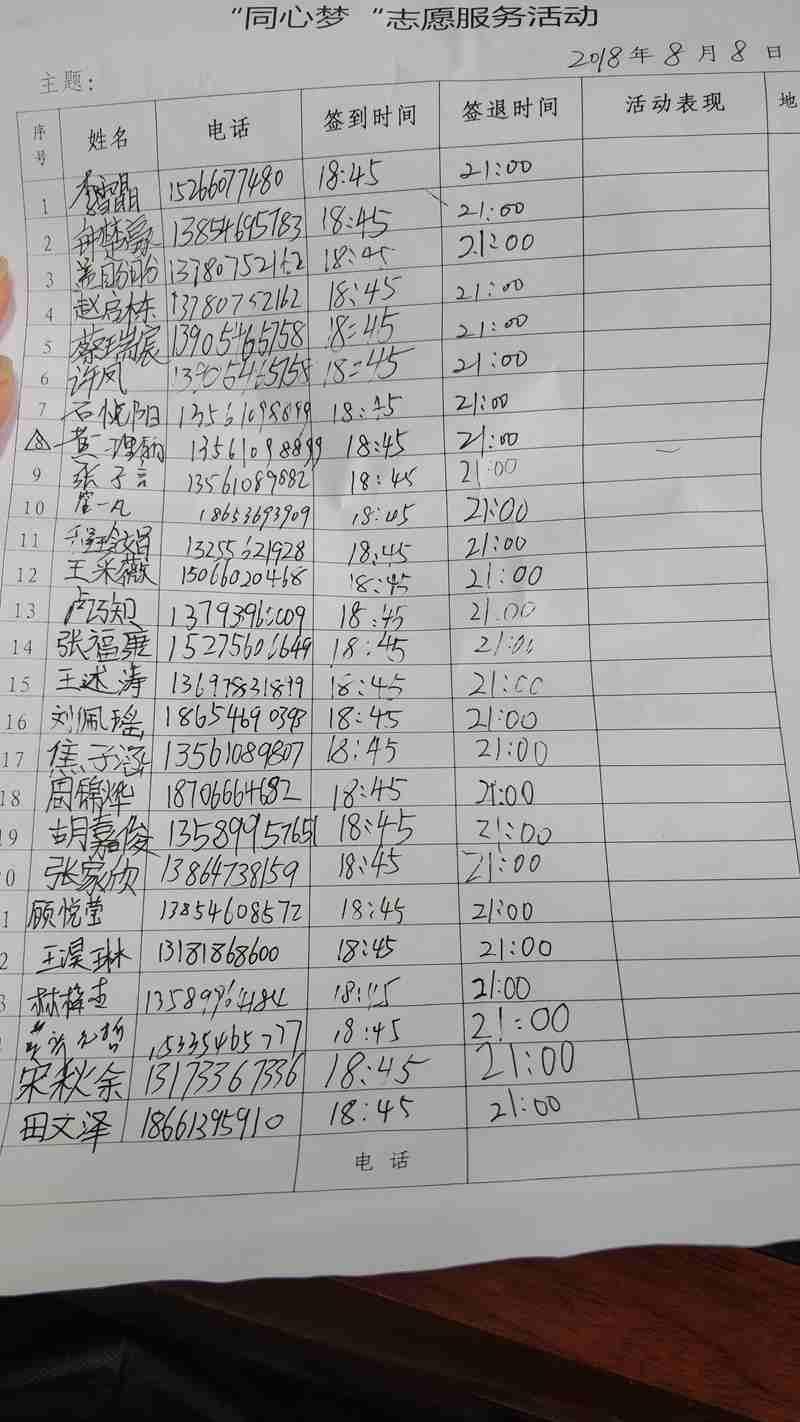 “同心梦“志愿服务活动
2018年8月8日
主题：
序号 姓名 电话 签到时间 签退时间 活动表现 地
1 李雪晶 15266077480 18:45 21:00
2 13854695783 18:45 21:00
3 13780752162 18:45 21:00
4 赵启栋 13780752162 18:45 21:00
5 蔡瑞宸 13905465758 18:45 21:00
6 许凤 13905465758 18:45 21:00
7 石悦阳 13561098899 18:45 21:00
8 黄 13561098899 18:45 21:00
9 张子言 13561089882 18:45 21:00
10 一凡 18653693909 18:45 21:00
11 13255621928 18:45 21:00
12 王采薇 15066020468 18:45 21:00
13 卢巧知 13793961009 18:45 21:00
14 张福 15275606649 18:45 21:00
15 王述涛 13697831899 18:45 21:00
16 刘佩瑶 18654690393 18:45 21:00
17 焦子涵 13561089807 18:45 21:00
18 周锦烨 18706664682 18:45 21:00
9 胡嘉俊 13589957651 18:45 21:00
0 张家欣 13864738159 18:45 21:00
1 顾悦莹 13854608572 18:45 21:00
2 王淏琳 13181868600 18:45 21:00
3 18:45 21:00
15335465777 18:45 21:00
宋秋余 13173367336 18:45 21:00
田文泽 18661395910 18:45 21:00
电话